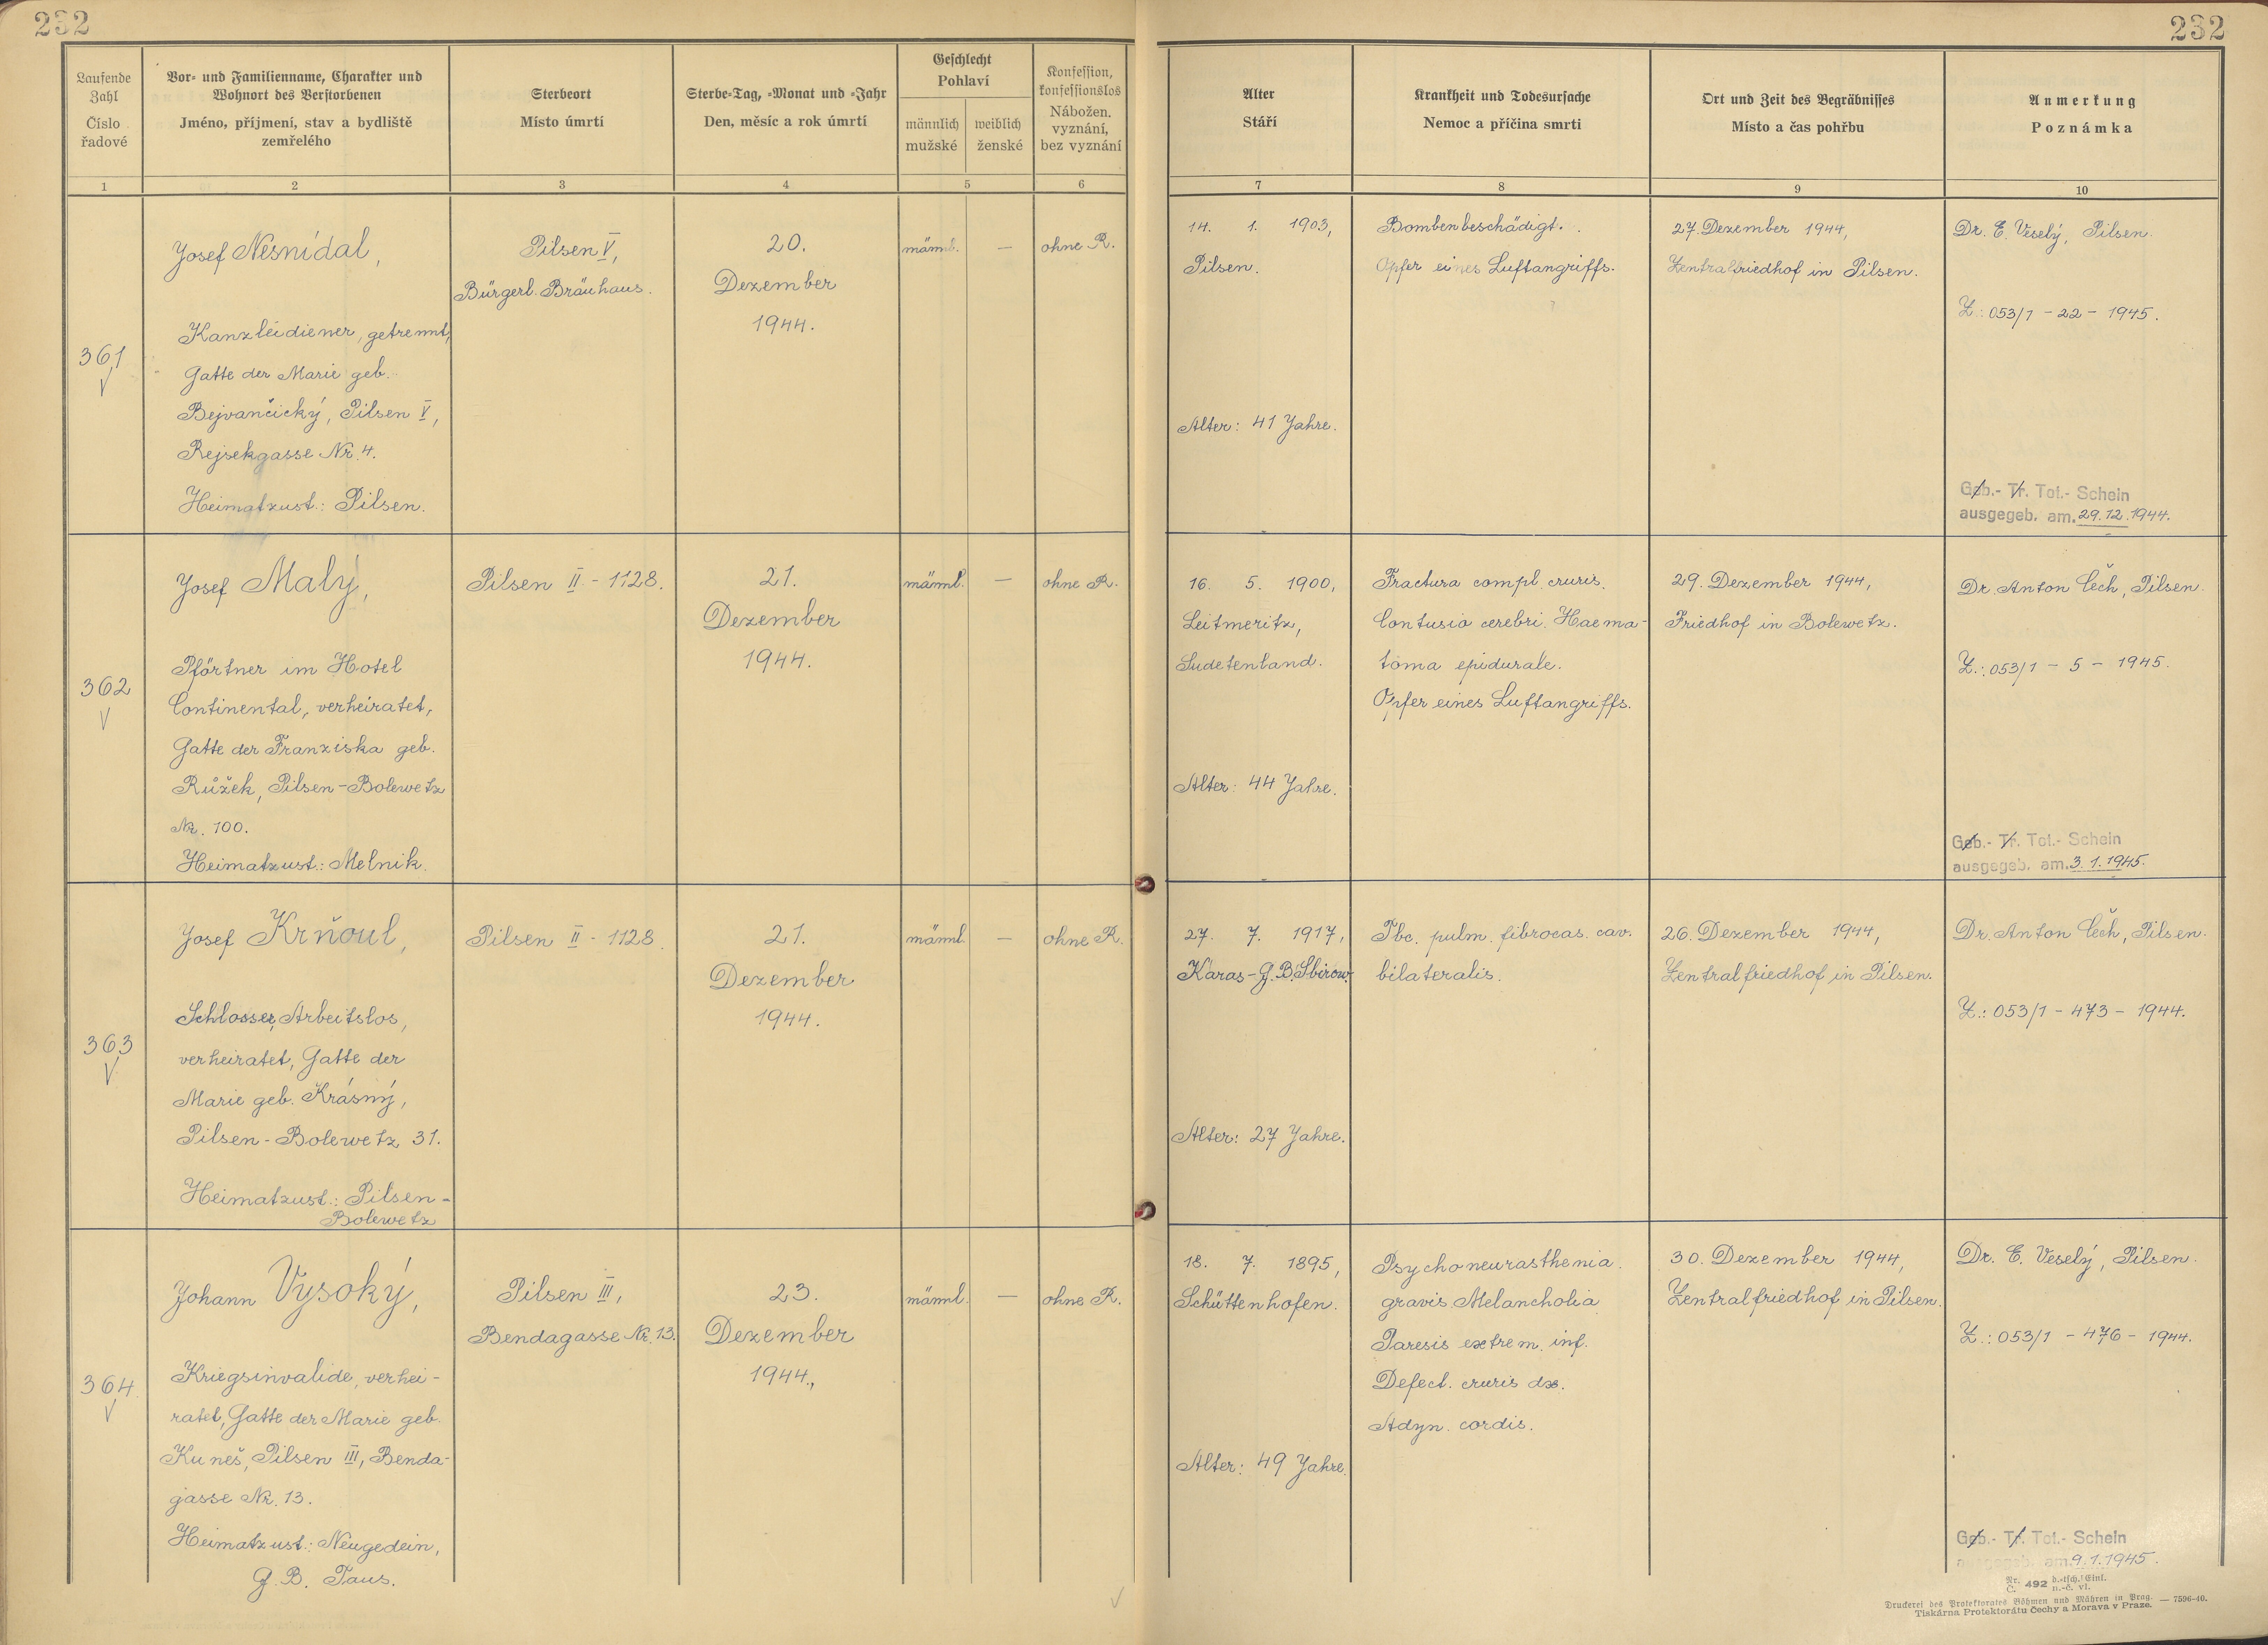 232
232
Laufende
Zahl
Číslo
řadové
Vor- und Familienname, Charakter und
Wohnort des Verstorbenen
Jméno, příjmení, stav a bydliště
zemřelého
Sterbeort
Místo úmrtí
Sterbe-Tag, -Monat und -Jahr
Den, měsíc a rok úmrtí
Geschlecht
Pohlaví
männlich
mužské
weiblich
ženské
Konfession,
konfessionslos
Nábožen.
vyznání,
bez vyznání
Alter
Stáří
Krankheit und Todesursache
Nemoc a příčina smrti
Ort und Zeit des Begräbnisses
Místo a čas pohřbu
Anmerkung
Poznámka
1
2
3
4
5
6
7
8
9
10
361
Josef Nesnídal,
Kanzleidiener, getrennt,
Gatte der Marie geb.
Bejvančický, Pilsen V,
Rejsekgasse Nr. 4.
Heimatzust.: Pilsen.
Pilsen V,
Bürgerl. Bräuhaus.
20.
Dezember
1944.
männl.
—
ohne R.
14. 1. 1903,
Pilsen.
Alter: 41 Jahre.
Bombenbeschädigt.
Opfer eines Luftangriffs.
27. Dezember 1944,
Zentralfriedhof in Pilsen.
Dr. E. Veselý, Pilsen.
Z.: 053/1 - 22 - 1945.
Geb.- Tr. Tot.- Schein
ausgegeb. am. 29.12.1944.
362
Josef Malý,
Pförtner im Hotel
Continental, verheiratet,
Gatte der Franziska geb.
Růžek, Pilsen-Bolewetz
Nr. 100.
Heimatzust.: Melnik.
Pilsen II - 1128.
21.
Dezember
1944.
männl.
—
ohne R.
16. 5. 1900,
Leitmeritz,
Sudetenland.
Alter: 44 Jahre.
Fractura compl. cruris.
Contusio cerebri. Haema-
toma epidurale.
Opfer eines Luftangriffs.
29. Dezember 1944,
Friedhof in Bolewetz.
Dr. Anton Čech, Pilsen.
Z.: 053/1 - 5 - 1945.
Geb.- Tr. Tot.- Schein
ausgegeb. am. 3.1.1945.
363
Josef Krňoul,
Schlosser, Arbeitslos,
verheiratet, Gatte der
Marie geb. Krásný,
Pilsen-Bolewetz 31.
Heimatzust.: Pilsen-
Bolewetz
Pilsen II - 1128.
21.
Dezember
1944.
männl.
—
ohne R.
27. 7. 1917,
Karas-G.B. Sbirow.
Alter: 27 Jahre.
Tbc. pulm. fibrocas. cav.
bilateralis.
26. Dezember 1944,
Zentralfriedhof in Pilsen.
Dr. Anton Čech, Pilsen.
Z.: 053/1 - 473 - 1944.
364
Johann Vysoký,
Kriegsinvalide, verhei-
ratet, Gatte der Marie geb.
Kuneš, Pilsen III, Benda-
gasse Nr. 13.
Heimatzust.: Neugedein,
G. B. Taus.
Pilsen III,
Bendagasse Nr. 13.
23.
Dezember
1944.,
männl.
—
ohne R.
18. 7. 1895,
Schüttenhofen.
Alter: 49 Jahre.
Psychoneurasthenia
gravis Melancholia
Paresis extrem. inf.
Defect. cruris dx.
Adyn. cordis.
30. Dezember 1944,
Zentralfriedhof in Pilsen.
Dr. E. Veselý, Pilsen.
Z.: 053/1 - 476 - 1944.
Geb.- Tr. Tot.- Schein
ausgegeb. am. 9.1.1945.
Nr. 492 d.-tsch. Einl.
Č. n.-č. vl.
Druckerei des Protektorates Böhmen und Mähren in Prag. — 7596-40.
Tiskárna Protektorátu Čechy a Morava v Praze.